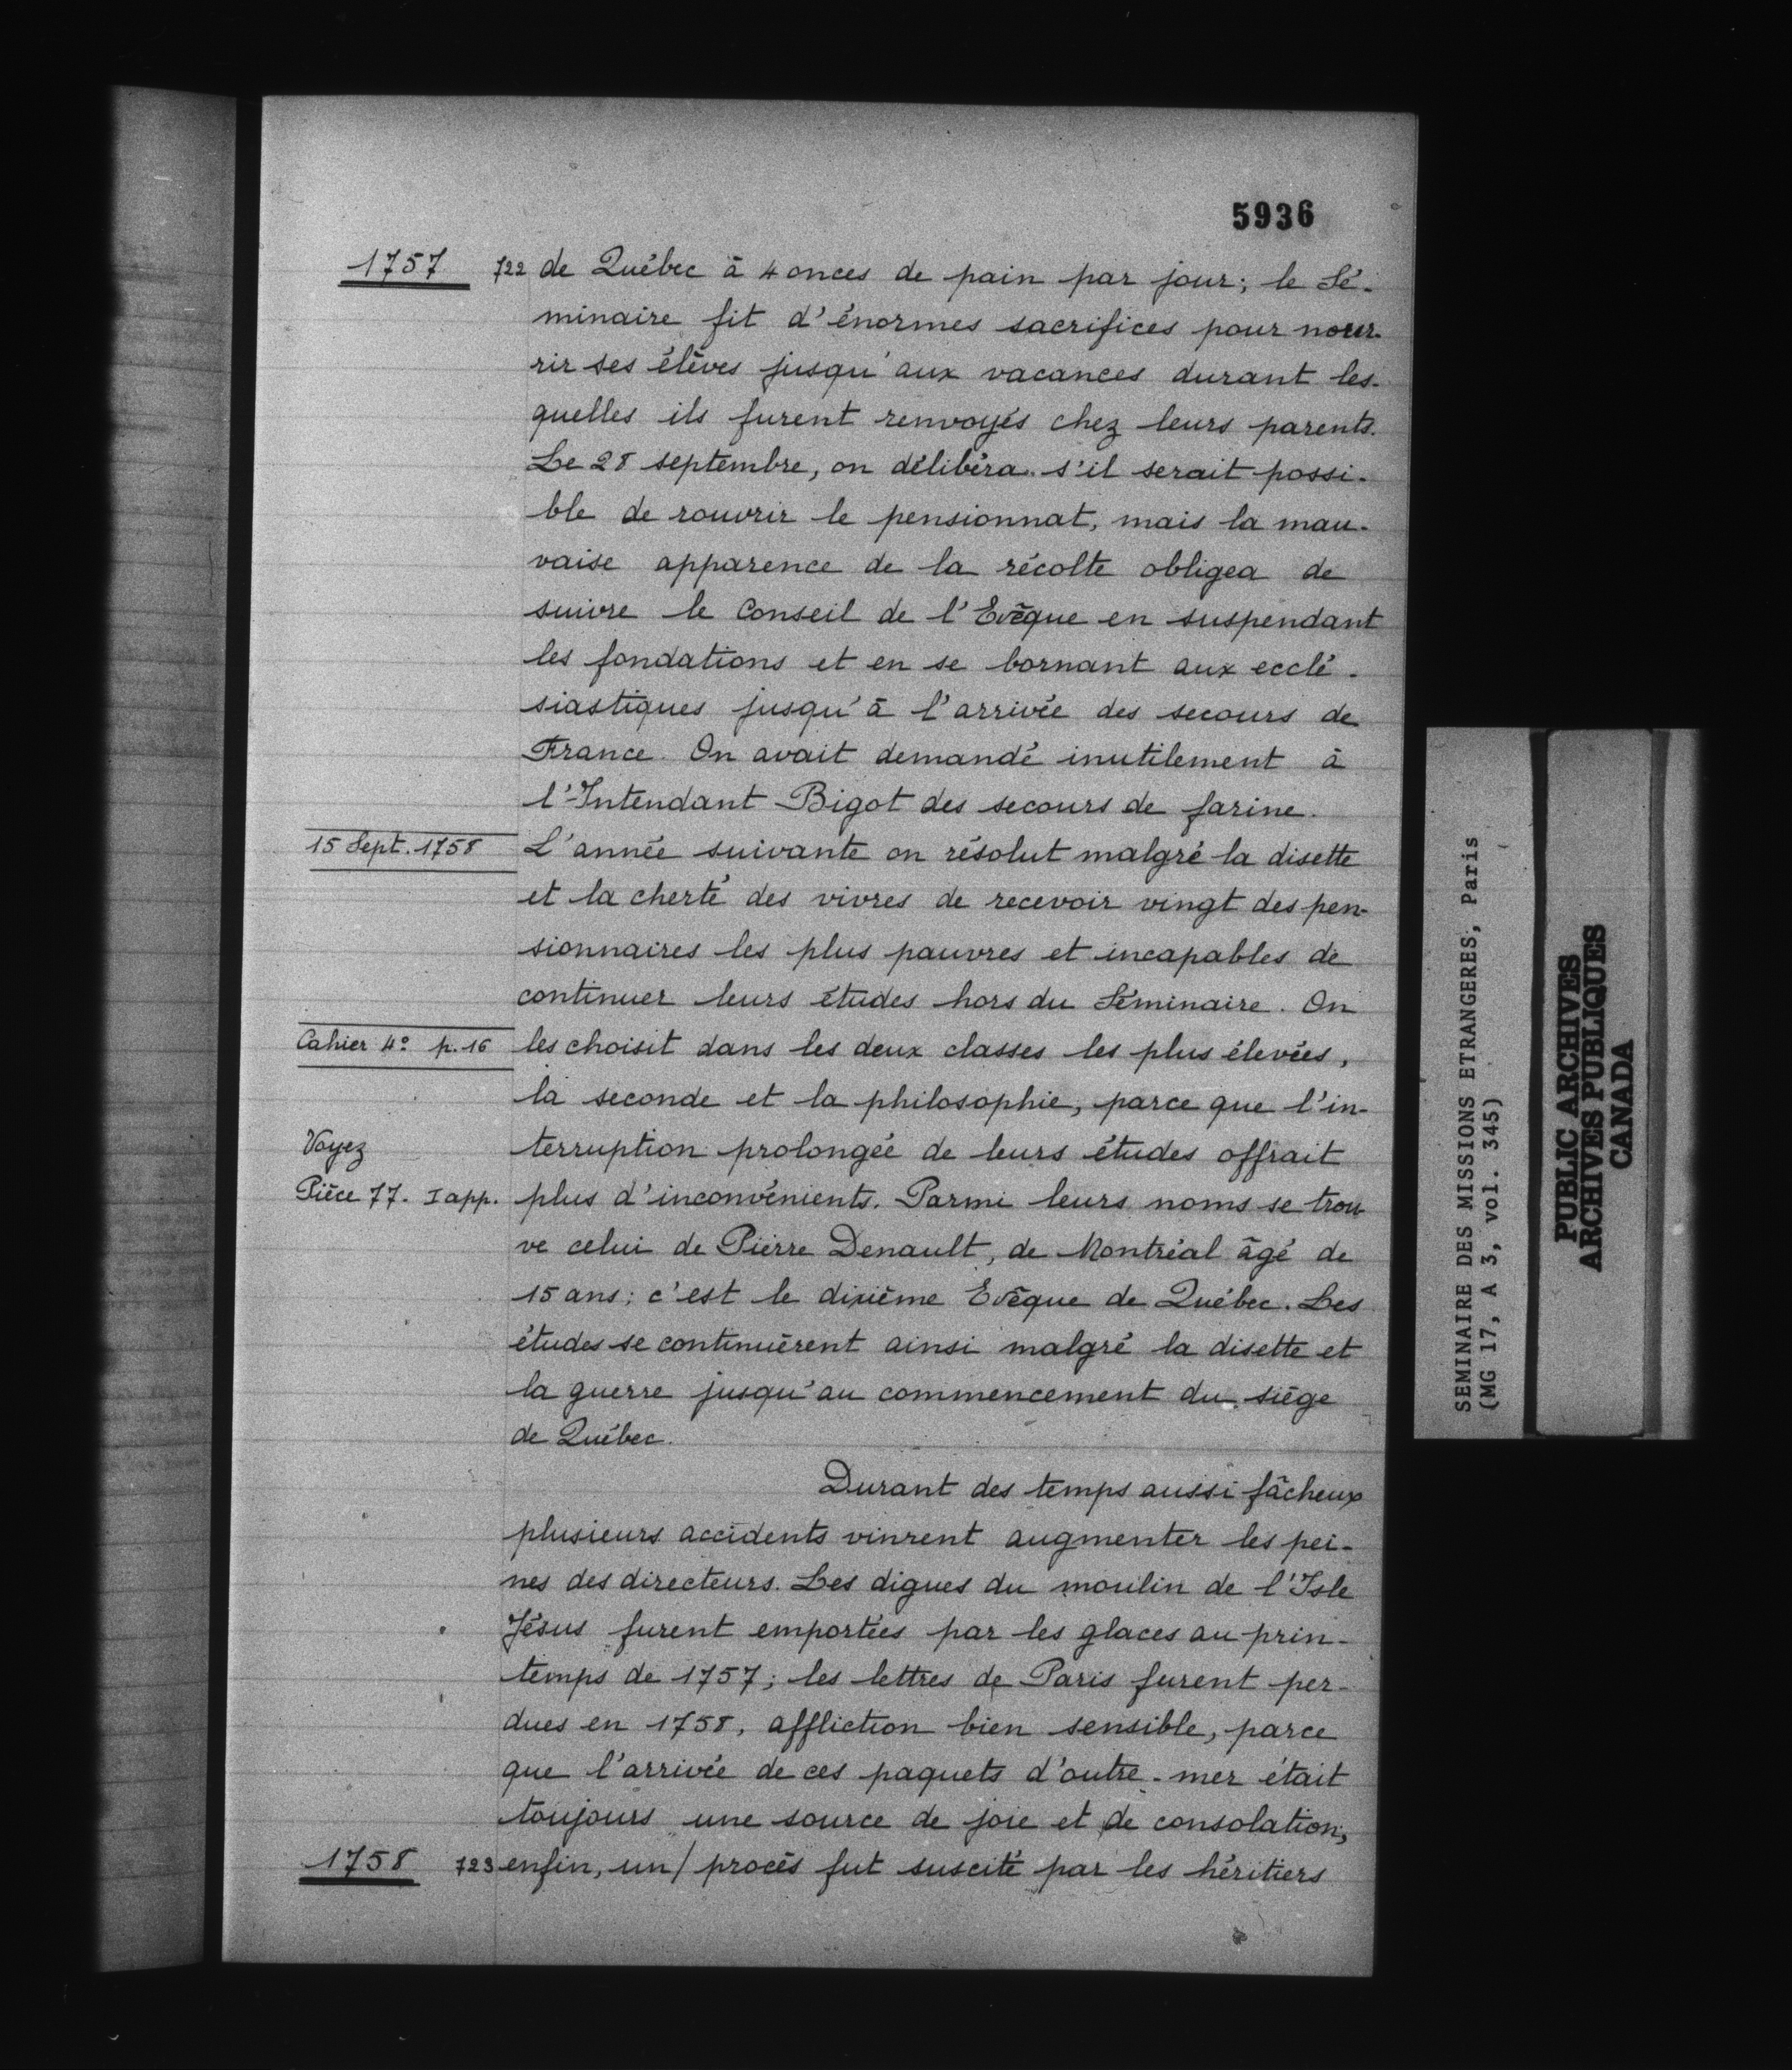 5936
1757 722 de Québec à 4 onces de pain par jour; le Sé-
minaire fit d'énormes sacrifices pour nour-
rir ses élèves jusqu'aux vacances durant les-
quelles ils furent renvoyés chez leurs parents.
Le 28 septembre, on délibéra s'il serait possi-
ble de rouvrir le pensionnat, mais la mau-
vaise apparence de la récolte obligea de
suivre le Conseil de l'Evêque en suspendant
les fondations et en se bornant aux ecclé-
siastiques jusqu'à l'arrivée des secours de
France. On avait demandé inutilement à
l'Intendant Bigot des secours de farine.
15 Sept. 1758 L'année suivante on résolut malgré la disette
et la cherté des vivres de recevoir vingt des pen-
sionnaires les plus pauvres et incapables de
continuer leurs études hors du Séminaire. On
Cahier 4º p. 16 les choisit dans les deux classes les plus élevées,
la seconde et la philosophie, parce que l'in-
Voyez terruption prolongée de leurs études offrait
Pièce 77. I app. plus d'inconvénients. Parmi leurs noms se trou-
ve celui de Pierre Denault, de Montréal âgé de
15 ans; c'est le dixième Evêque de Québec. Les
études se continuèrent ainsi malgré la disette et
la guerre jusqu'au commencement du siège
de Québec.
Durant des temps aussi fâcheux
plusieurs accidents vinrent augmenter les pei-
nes des directeurs. Les digues du moulin de l'Isle
Jésus furent emportées par les glaces au prin-
temps de 1757; les lettres de Paris furent per-
dues en 1758, affliction bien sensible, parce
que l'arrivée de ces paquets d'outre-mer était
toujours une source de joie et de consolation;
1758 723 enfin, un/ procès fut suscité par les héritiers
SEMINAIRE DES MISSIONS ETRANGERES, Paris
(MG 17, A 3, vol. 345)
PUBLIC ARCHIVES
ARCHIVES PUBLIQUES
CANADA